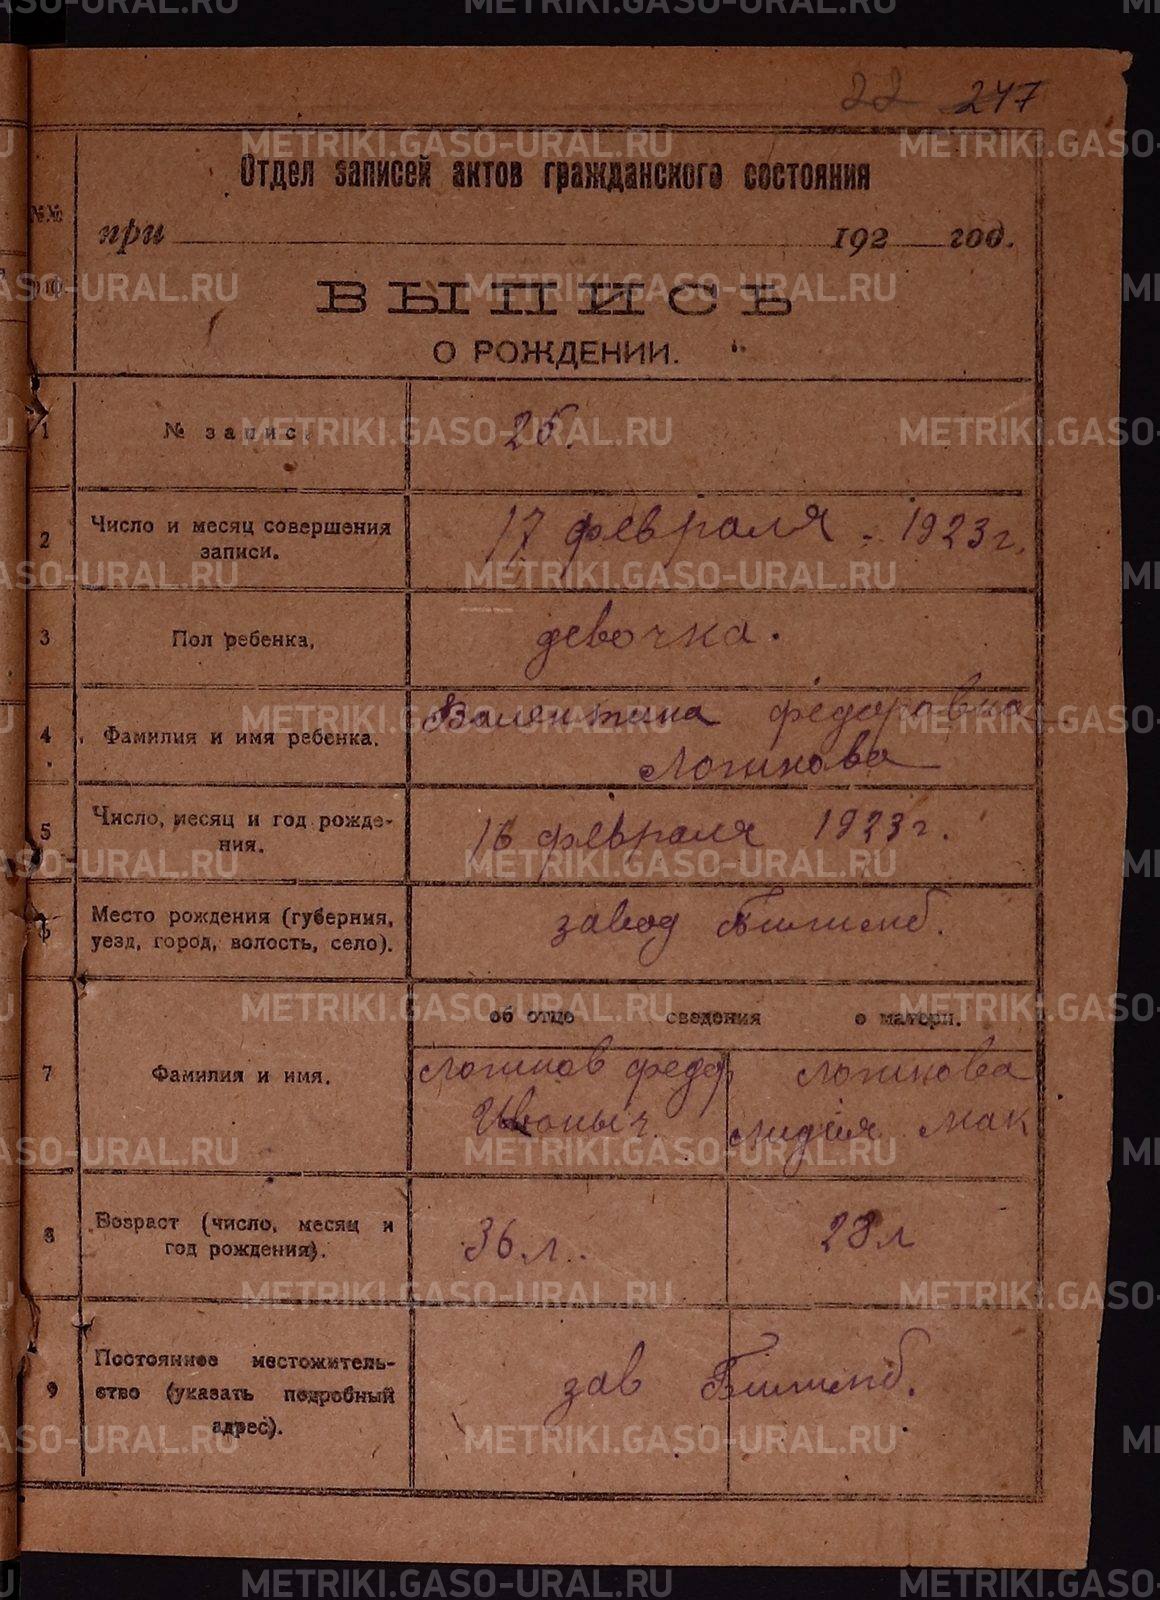 22 247
Отдел записей актов гражданского состояния
№№
при 192 год.
ВЫПИСЬ
О РОЖДЕНИИ.
1 № запис. 26.
2 Число и месяц совершения
записи.
17 февраля - 1923 г.
3 Пол ребенка, девочка.
4 Фамилия и имя ребенка. Валентина Федоровна
Логинова
5 Число, месяц и год рожде-
ния.
16 февраля 1923 г.
6 Место рождения (губерния,
уезд, город, волость, село).
завод Билимб.
об отце сведения о матери.
7 Фамилия и имя.
Логинов Федр
Иваныч.
Логинова
Лидия Мак
8 Возраст (число, месяц и
год рождения).
36 л. 28 л
9 Постоянное местожитель-
ство (указать подробный
адрес).
зав Билимб.
METRIKI.GASO-URAL.RU